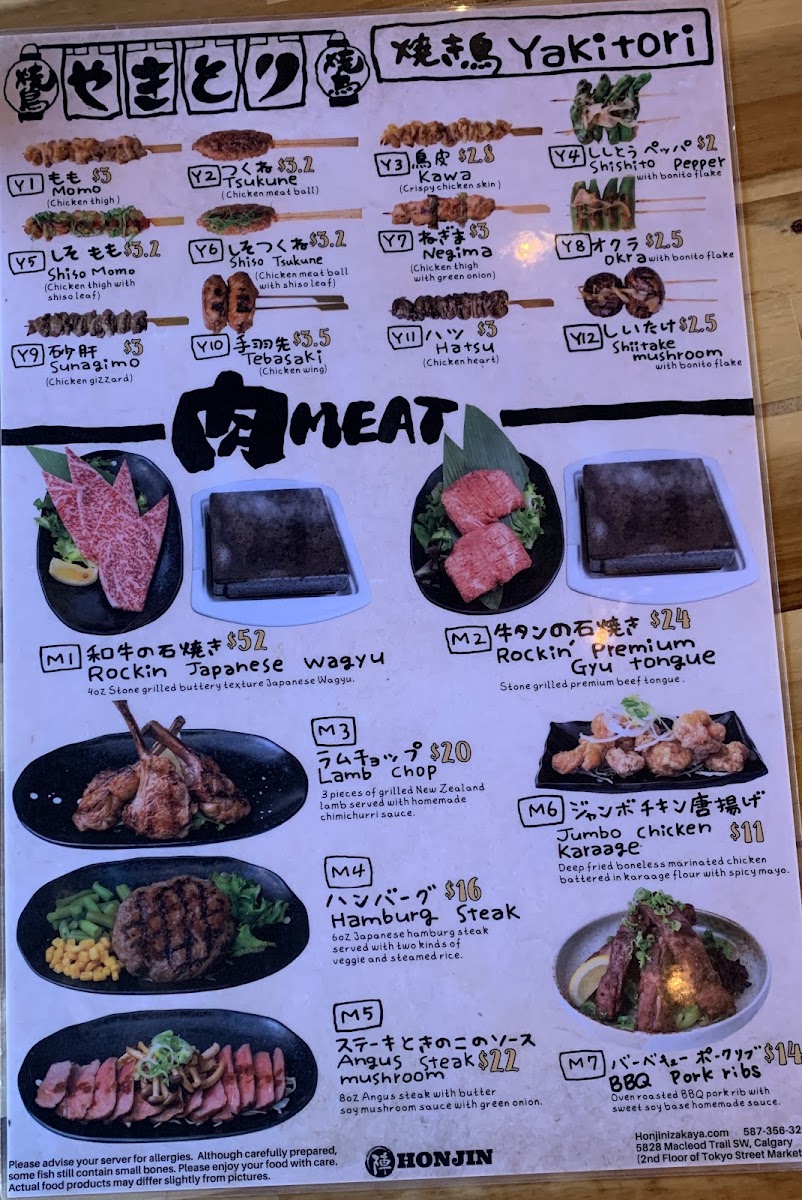 焼鳥
やきとり
焼鳥
焼き鳥 Yakitori
Y1 もも $3
Momo
(Chicken thigh)
Y2 つくね $3.2
Tsukune
(Chicken meat ball)
Y3 鳥皮 $2.8
Kawa
(Crispy chicken skin)
Y4 ししとうペッパ $2
Shishito Pepper
with bonito flake
Y5 しそもも $3.2
Shiso Momo
(Chicken thigh with
shiso leaf)
Y6 しそつくね $3.2
Shiso Tsukune
(Chicken meat ball
with shiso leaf)
Y7 ねぎま $3
Negima
(Chicken thigh
with green onion)
Y8 オクラ $2.5
Okra with bonito flake
Y9 砂肝 $3
Sunagimo
(Chicken gizzard)
Y10 手羽先 $3.5
Tebasaki
(Chicken wing)
Y11 ハツ $3
Hatsu
(Chicken heart)
Y12 しいたけ $2.5
Shiitake
mushroom
with bonito flake
肉 MEAT
M1 和牛の石焼き $52
Rockin Japanese Wagyu
4oz Stone grilled buttery texture Japanese Wagyu.
M2 牛タンの石焼き $24
Rockin' Premium
Gyu tongue
Stone grilled premium beef tongue.
M3
ラムチョップ $20
Lamb Chop
3 pieces of grilled New Zealand
lamb served with homemade
chimichurri sauce.
M4
ハンバーグ $16
Hamburg Steak
6oz Japanese hamburg steak
served with two kinds of
veggie and steamed rice.
M5
ステーキときのこのソース
Angus Steak $22
mushroom
8oz Angus steak with butter
soy mushroom sauce with green onion.
M6 ジャンボチキン唐揚げ
Jumbo Chicken $11
Karaage
Deep fried boneless marinated chicken
battered in karaage flour with spicy mayo.
M7 バーベキューポークリブ $14
BBQ Pork ribs
Oven roasted BBQ pork rib with
sweet soy base homemade sauce.
Please advise your server for allergies. Although carefully prepared,
some fish still contain small bones. Please enjoy your food with care.
Actual food products may differ slightly from pictures.
陣 HONJIN
Honjinizakaya.com 587-356-32
5828 Macleod Trail SW, Calgary
(2nd Floor of Tokyo Street Market